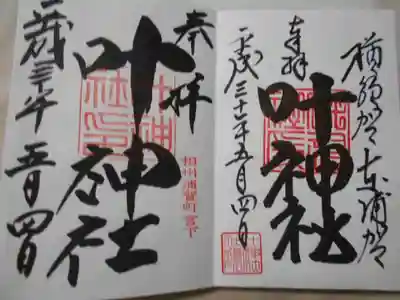 横須賀東浦賀
奉拝
叶神社
平成三十年五月四日
奉拝
相州浦賀町宮下
叶神社
平成三十年五月四日